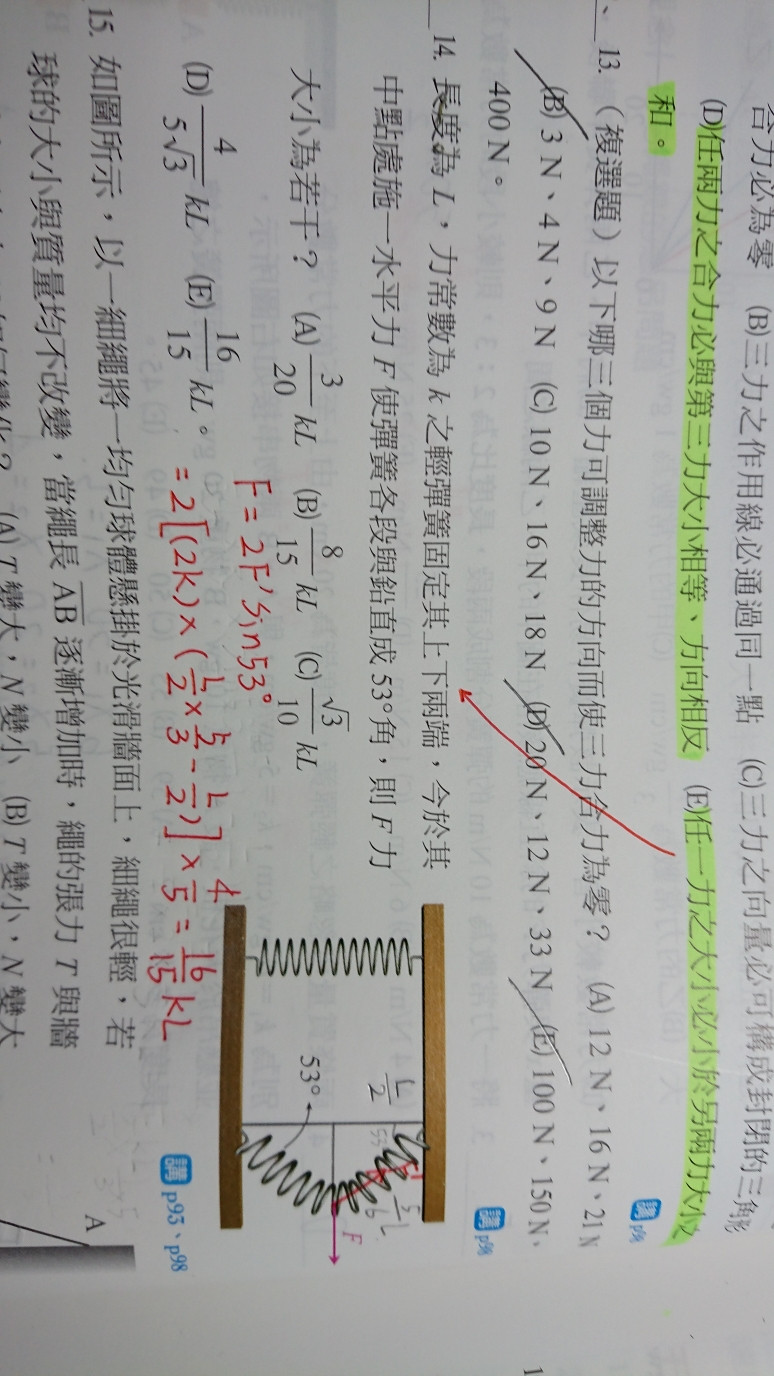 合力必為零 (B)三力之作用線必通過同一點 (C)三力之向量必可構成封閉的三角形
(D)任兩力之合力必與第三力大小相等、方向相反 (E)任一力之大小必小於另兩力大小之
和。
講 p98
13.（複選題）以下哪三個力可調整力的方向而使三力合力為零？ (A) 12 N、16 N、21 N
(B) 3 N、4 N、9 N (C) 10 N、16 N、18 N (D) 20 N、12 N、33 N (E) 100 N、150 N、
400 N。
講 p98
14. 長度為 L，力常數為 k 之輕彈簧固定其上下兩端，今於其
中點處施一水平力 F 使彈簧各段與鉛直成 53°角，則 F 力
大小為若干？ (A) 3/20 kL (B) 8/15 kL (C) √3/10 kL
(D) 4/5√3 kL (E) 16/15 kL。
F = 2F' sin53°
= 2[(2k)×(L/2×5/3−L/2)]×4/5 = 16/15 kL
L/2
53°
5/6 L
F'
F
53°
講 p95、p98
15. 如圖所示，以一細繩將一均勻球體懸掛於光滑牆面上，細繩很輕，若
球的大小與質量均不改變，當繩長 AB 逐漸增加時，繩的張力 T 與牆
(A) T 變大，N 變小 (B) T 變小，N 變大
A
1